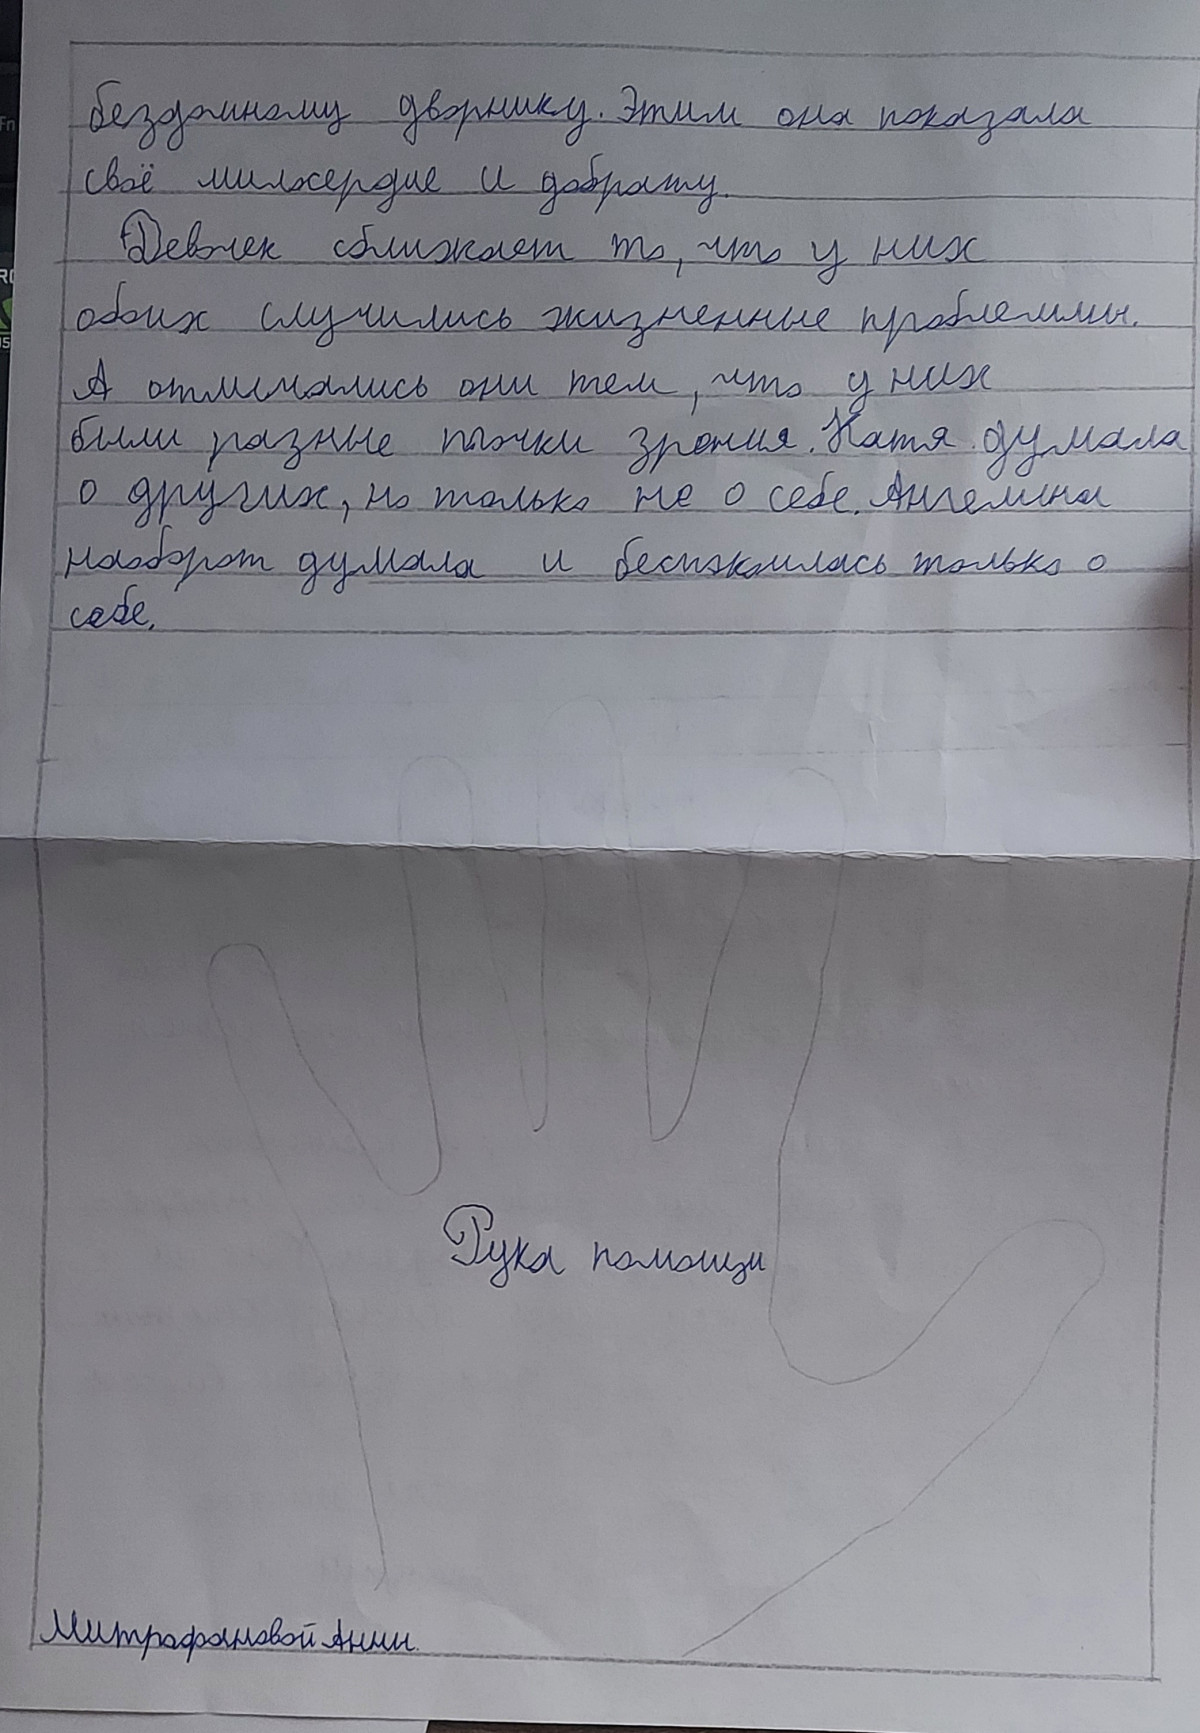 бездомному дворнику. Этим она показала
своё милосердие и доброту.
Девочек сближает то, что у них
обоих случились жизненные проблеммы.
А отличались они тем, что у них
были разные точки зрения. Катя думала
о других, но только не о себе. Ангелина
наоборот думала и беспокоилась только о
себе.
Рука помощи
Митрофановой Анны.